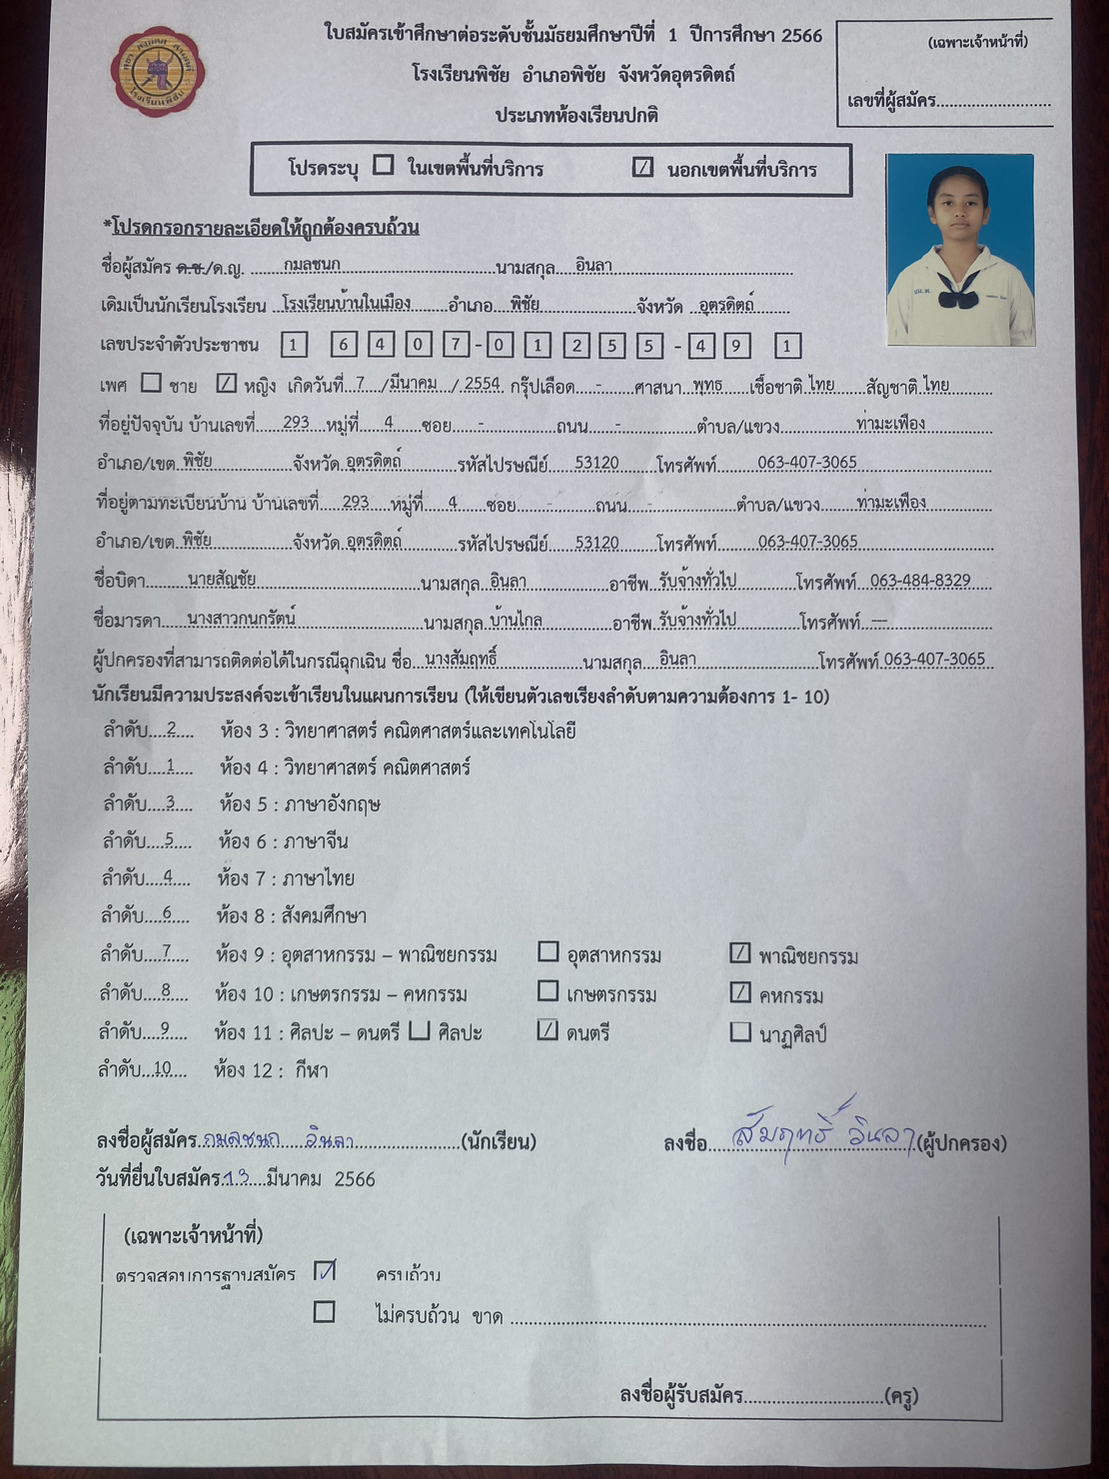 ใบสมัครเข้าศึกษาต่อระดับชั้นมัธยมศึกษาปีที่ 1 ปีการศึกษา 2566
โรงเรียนพิชัย อำเภอพิชัย จังหวัดอุตรดิตถ์
ประเภทห้องเรียนปกติ
(เฉพาะเจ้าหน้าที่)
เลขที่ผู้สมัคร..........................
โรงเรียนพิชัย
โปรดระบุ ☐ ในเขตพื้นที่บริการ ☑ นอกเขตพื้นที่บริการ
*โปรดกรอกรายละเอียดให้ถูกต้องครบถ้วน
ชื่อผู้สมัคร ด.ช./ด.ญ. ......กมลชนก......นามสกุล...อินลา......
เดิมเป็นนักเรียนโรงเรียน ..โรงเรียนบ้านในเมือง......อำเภอ..พิชัย......จังหวัด ..อุตรดิตถ์......
เลขประจำตัวประชาชน 1 6407-01255-49 1
เพศ ☐ ชาย ☑ หญิง เกิดวันที่..7.../มีนาคม../.2554. กรุ๊ปเลือด...-......ศาสนา..พุทธ....เชื้อชาติ.ไทย....สัญชาติ.ไทย......
ที่อยู่ปัจจุบัน บ้านเลขที่.....293..หมู่ที่....4....ซอย....-......ถนน....-......ตำบล/แขวง......ท่ามะเฟือง......
อำเภอ/เขต.พิชัย......จังหวัด.อุตรดิตถ์......รหัสไปรษณีย์....53120......โทรศัพท์......063-407-3065......
ที่อยู่ตามทะเบียนบ้าน บ้านเลขที่....293...หมู่ที่...4....ซอย.....-......ถนน...-......ตำบล/แขวง.....ท่ามะเฟือง......
อำเภอ/เขต.พิชัย......จังหวัด.อุตรดิตถ์......รหัสไปรษณีย์....53120......โทรศัพท์......063-407-3065......
ชื่อบิดา......นายสัญชัย......นามสกุล..อินลา......อาชีพ..รับจ้างทั่วไป......โทรศัพท์..063-484-8329......
ชื่อมารดา....นางสาวกนกรัตน์......นามสกุล.บ้านไกล......อาชีพ..รับจ้างทั่วไป......โทรศัพท์..---......
ผู้ปกครองที่สามารถติดต่อได้ในกรณีฉุกเฉิน ชื่อ..นางสัมฤทธิ์......นามสกุล...อินลา......โทรศัพท์.063-407-3065..
นักเรียนมีความประสงค์จะเข้าเรียนในแผนการเรียน (ให้เขียนตัวเลขเรียงลำดับตามความต้องการ 1- 10)
ลำดับ....2.... ห้อง 3 : วิทยาศาสตร์ คณิตศาสตร์และเทคโนโลยี
ลำดับ....1.... ห้อง 4 : วิทยาศาสตร์ คณิตศาสตร์
ลำดับ....3.... ห้อง 5 : ภาษาอังกฤษ
ลำดับ....5.... ห้อง 6 : ภาษาจีน
ลำดับ....4.... ห้อง 7 : ภาษาไทย
ลำดับ....6.... ห้อง 8 : สังคมศึกษา
ลำดับ....7.... ห้อง 9 : อุตสาหกรรม – พาณิชยกรรม ☐ อุตสาหกรรม ☑ พาณิชยกรรม
ลำดับ....8.... ห้อง 10 : เกษตรกรรม – คหกรรม ☐ เกษตรกรรม ☑ คหกรรม
ลำดับ....9.... ห้อง 11 : ศิลปะ – ดนตรี ☐ ศิลปะ ☑ ดนตรี ☐ นาฏศิลป์
ลำดับ...10.... ห้อง 12 : กีฬา
ลงชื่อผู้สมัคร..กมลชนก....อินลา......(นักเรียน) ลงชื่อ....สัมฤทธิ์ อินลา(ผู้ปกครอง)
วันที่ยื่นใบสมัคร.13....มีนาคม 2566
(เฉพาะเจ้าหน้าที่)
ตรวจสอบการฐานสมัคร ☑ ครบถ้วน
☐ ไม่ครบถ้วน ขาด ......................................
ลงชื่อผู้รับสมัคร..............................(ครู)